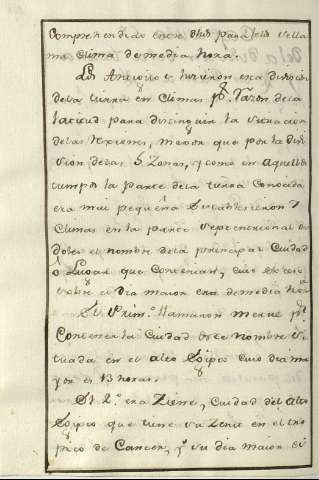 Comprehendido entre dhos paralelos se lla
ma Clima de media hora.
Los Antiguos hicieron esta division
dela tierra en Climas pr. razon dela
latitud para distinguir la situacion
delas Rexiones, mexor que por la divi
sion delas 5 Zonas, y como en aquellos
tiempos la parte dela tierra Conocida
era mui pequeña establecieron 7
Climas en la parte septentrional
doles el nombre dela principal Ciudad
ò Lugar que Contenian, cuio exceso
sobre el dia maior era de media hora
El Primo. llamaron Meroe pr.
Contener la Ciudad deste nombre si
tuada en el alto Egipto cuio dia ma
yor es 13 horas.
El 2º. era Ziene, Ciudad del alto
Egipto que tiene su Zenit en el tro
pico de Cancer, y su dia maior es